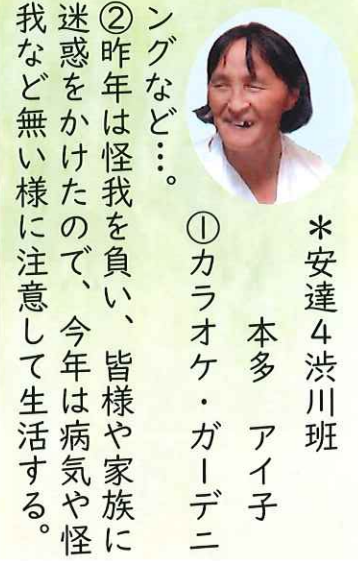 ＊安達４渋川班
本多　アイ子
①カラオケ・ガーデニ
ングなど…。
②昨年は怪我を負い、皆様や家族に
迷惑をかけたので、今年は病気や怪
我など無い様に注意して生活する。